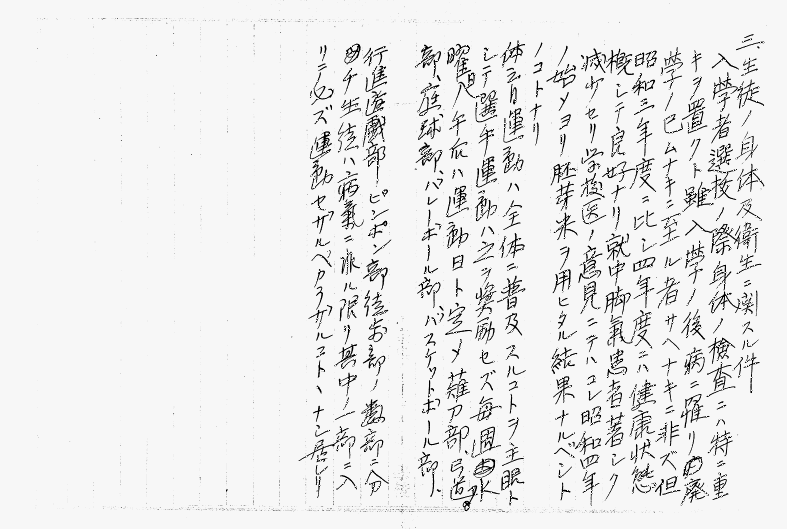 三、生徒ノ身体及衛生ニ関スル件
入學者選抜ノ際身体ノ檢査ニハ特ニ重
キヲ置クト雖入學ノ後病ニ罹リ廃
學ノ已ムナキニ至ル者サヘナキニ非ズ但
昭和三年度ニ比シ四年度ニハ健康状態
概シテ良好ナリ就中脚氣患者著シク
減少セリ学校医ノ意見ニテハコレ昭和四年
ノ始メヨリ胚芽米ヲ用ヒタル結果ナルベシト
ノコトナリ
体育運動ハ全体ニ普及スルコトヲ主眼ト
シテ選手運動ハ之ヲ奨励セズ毎週水
曜日ノ午后ハ運動日ト定メ薙刀部、弓道
部、庭球部、バレーボール部バスケットボール部、
行進遊戯部、ピンポン部徒歩部ノ数部ニ分
チ生徒ハ病氣ニ非ル限リ其中ノ一部ニ入
リテ必ズ運動セザルベカラザルコトヽナシ居レリ